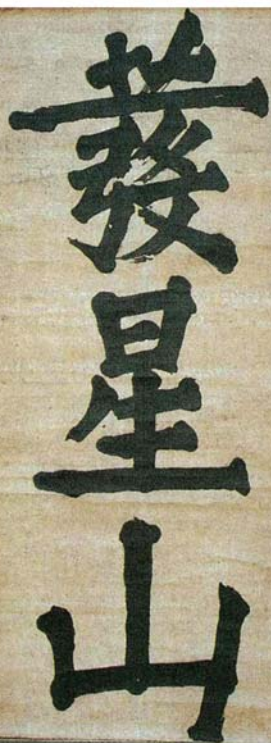 發星山